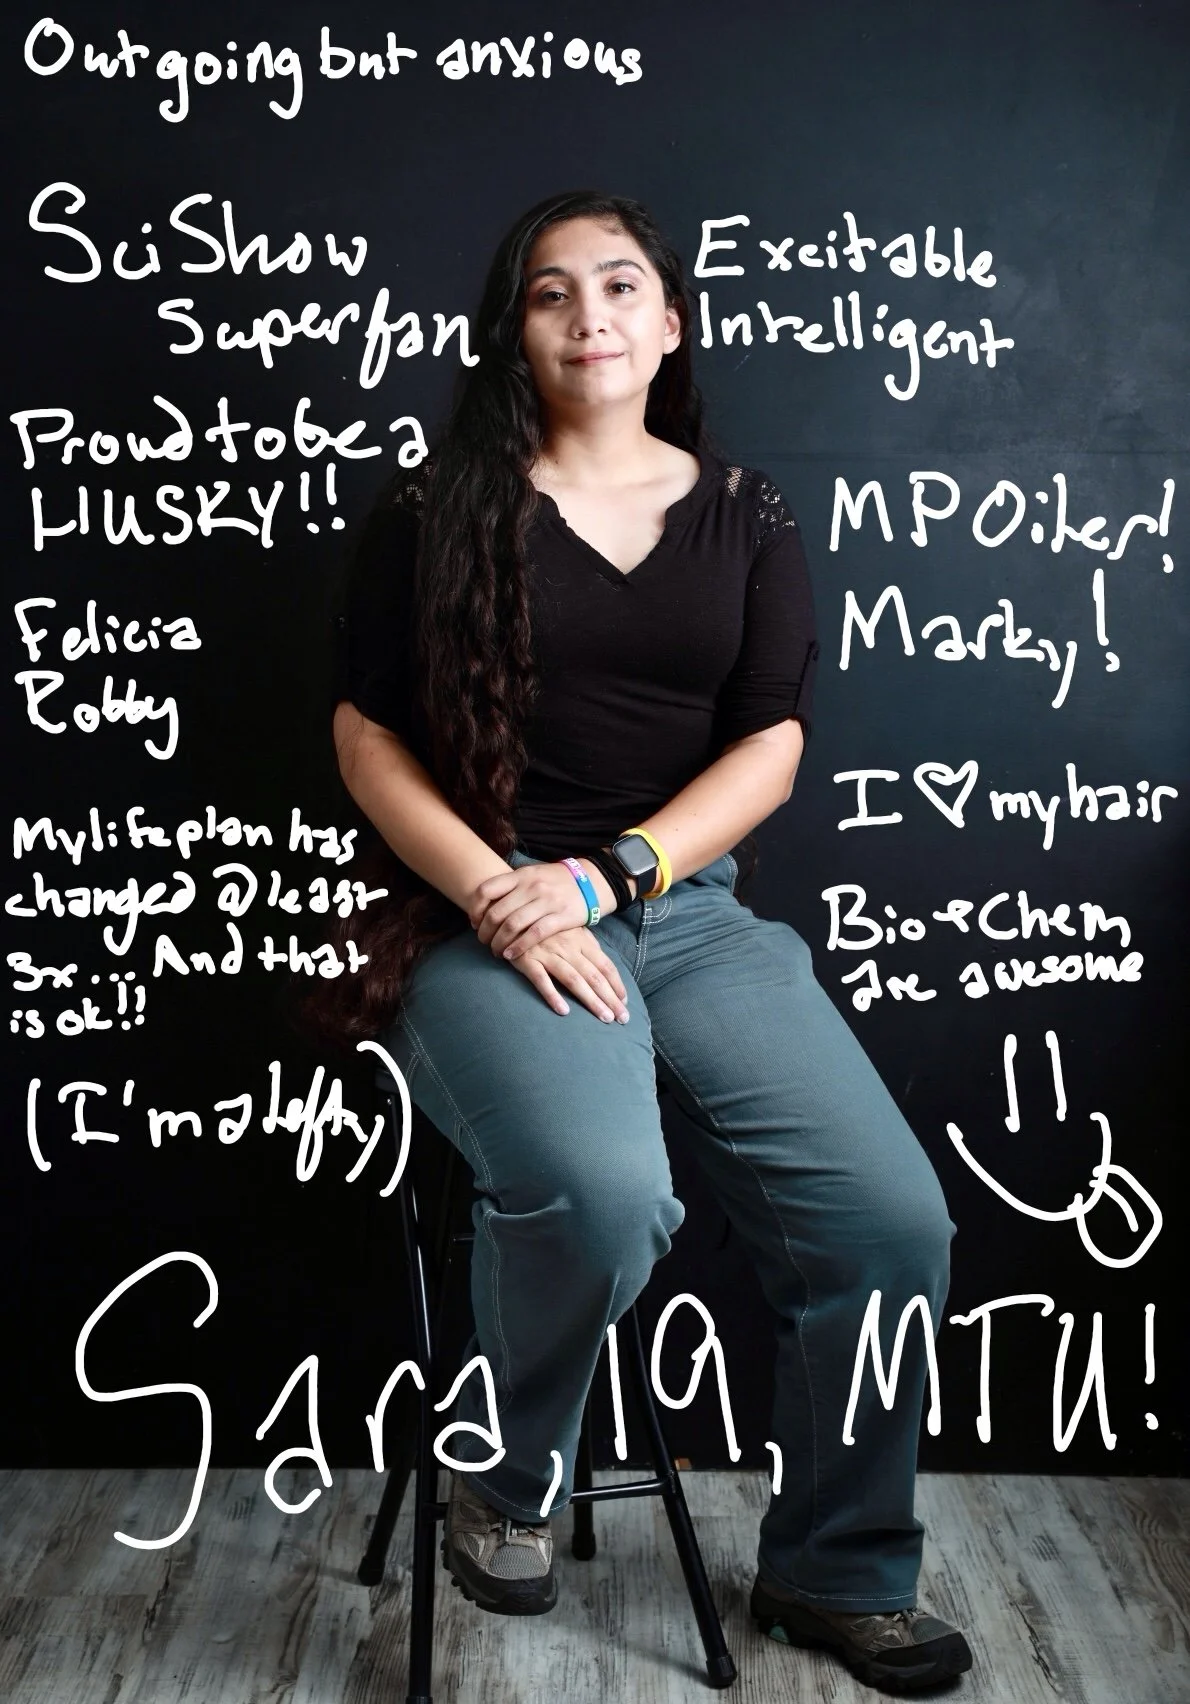 Outgoing but anxious
SciShow
Superfan
Excitable
Intelligent
Proud to be a
HUSKY!!
MP Oiler!
Marky!
Felicia
Robby
I ♡ my hair
My life plan has
changed @ least
3x... And that
is ok!!
Bio + Chem
are awesome
(I'm a lefty)
Sara, 19, MTU!